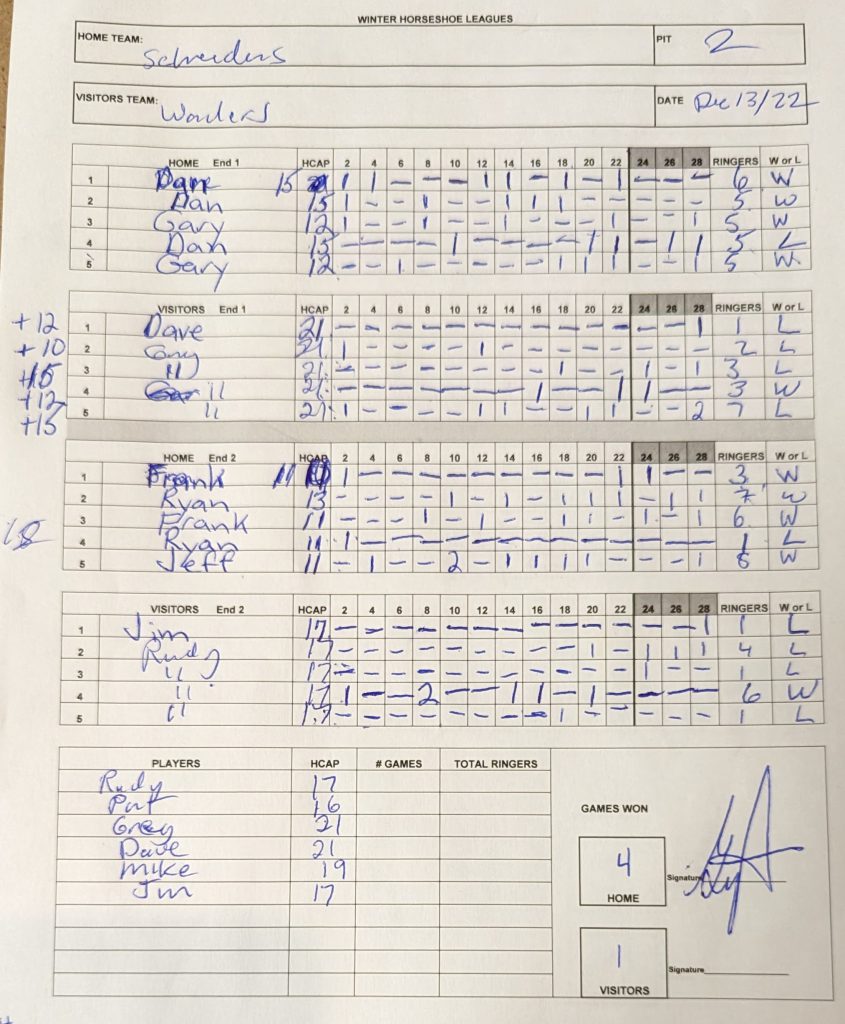 WINTER HORSESHOE LEAGUES
HOME TEAM: Schreiders PIT 2
VISITORS TEAM: DATE Dec 13/22
HOME End 1 HCAP 2 4 6 8 10 12 14 16 18 20 22 24 26 28 RINGERS W or L
1 15 1 1 - - - 1 1 - 1 - 1 - - - 6 W
2 Dan 15 1 - - 1 - - 1 1 1 - - - - - 5 W
3 Gary 12 1 - - 1 - - 1 - - - 1 - - 1 5 W
4 Dan 15 - - - - 1 - - - - 1 1 - 1 1 5 L
5 Gary 12 - - 1 - - - - - 1 1 1 - - 1 5 W
VISITORS End 1 HCAP 2 4 6 8 10 12 14 16 18 20 22 24 26 28 RINGERS W or L
+12 1 Dave 21 - - - - - - - - - - - - - 1 1 L
+10 2 21 1 - - - - 1 - - - - - - - - 2 L
+15 3 " 21 - - - - - - - - 1 - - 1 - 1 3 L
+12 4 " 21 - - - - - - - 1 - - 1 1 - - 3 W
+15 5 " 21 1 - - - - 1 1 - - 1 1 - - 2 7 L
HOME End 2 HCAP 2 4 6 8 10 12 14 16 18 20 22 24 26 28 RINGERS W or L
1 Frank 11 1 - - - - - - - - - 1 1 - - 3 W
2 Ryan 13 - - - - 1 - 1 - 1 1 1 - 1 1 7 W
3 Frank 11 - - - 1 - 1 - - 1 1 - 1 - 1 6 W
4 Ryan 11 1 - - - - - - - - - - - - - 1 L
5 Jeff 11 - 1 - - 2 - 1 1 1 1 - - - 1 8 W
VISITORS End 2 HCAP 2 4 6 8 10 12 14 16 18 20 22 24 26 28 RINGERS W or L
1 Jim 17 - - - - - - - - - - - - - 1 1 L
2 Rudy 17 - - - - - - - - - 1 - 1 1 1 4 L
3 " 17 - - - - - - - - - - - 1 - - 1 L
4 " 17 1 - - 2 - - 1 1 - 1 - - - - 6 W
5 " 17 - - - - - - - - 1 - - - - - 1 L
PLAYERS HCAP # GAMES TOTAL RINGERS
Rudy 17
Pat 16
Greg 21
Dave 21
Mike 19
Jim 17
GAMES WON
4
HOME
Signature
1
VISITORS
Signature